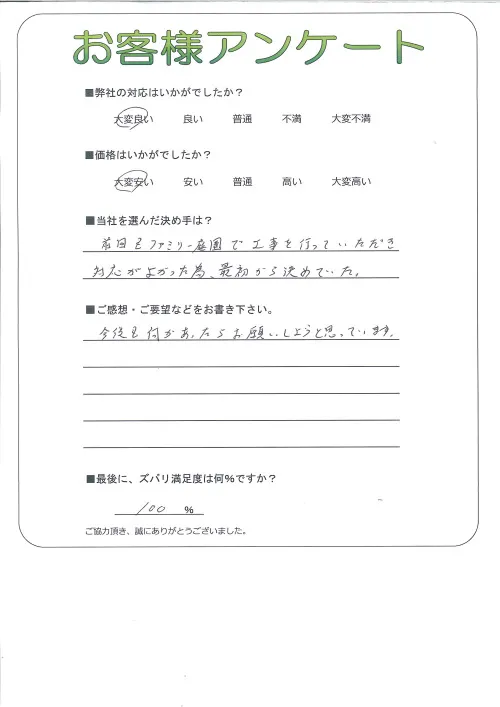 お客様アンケート
■弊社の対応はいかがでしたか？
大変良い 良い 普通 不満 大変不満
■価格はいかがでしたか？
大変安い 安い 普通 高い 大変高い
■当社を選んだ決め手は？
前回もファミリー庭園で工事を行っていただき
対応がよかった為、最初から決めていた。
■ご感想・ご要望などをお書き下さい。
今後も何かあったらお願いしようと思っています。
■最後に、ズバリ満足度は何％ですか？
100 ％
ご協力頂き、誠にありがとうございました。